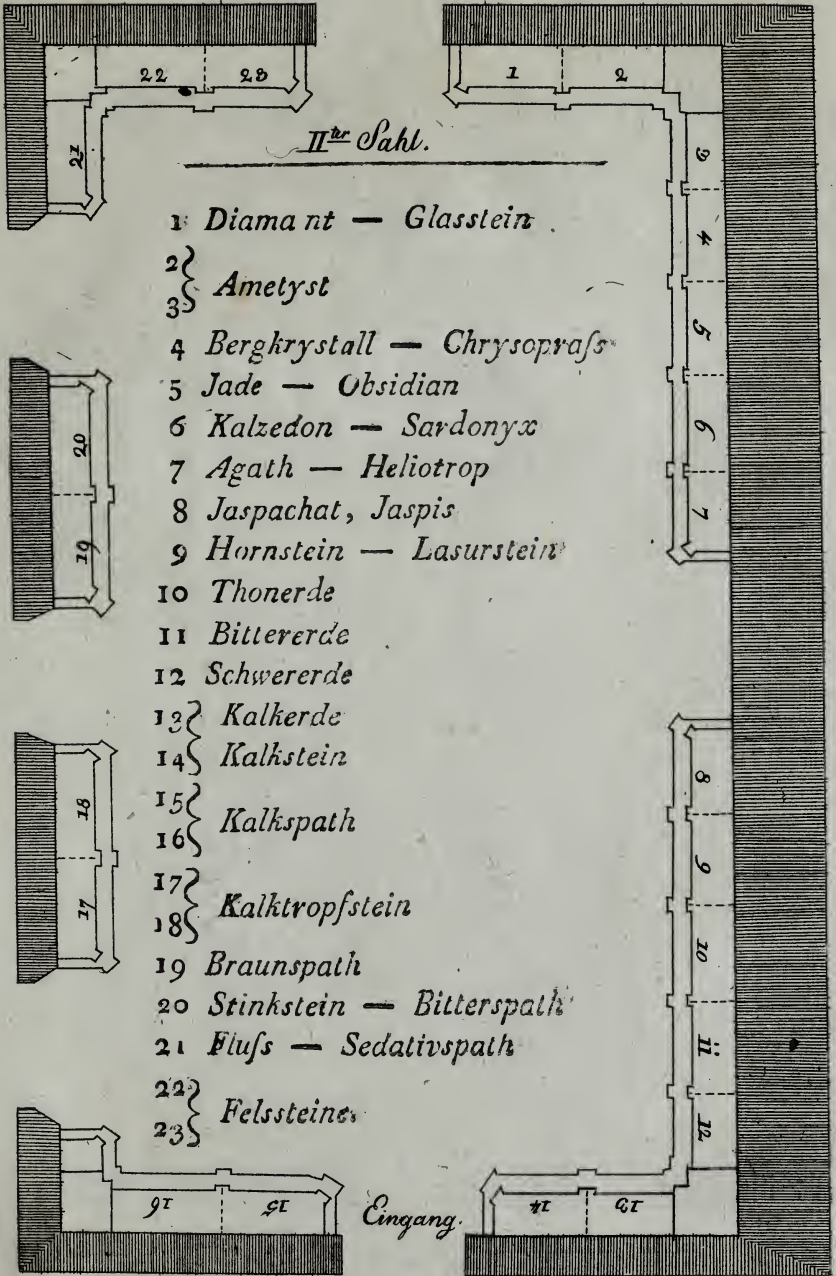 22 23 1 2
IIter Sahl.
21
3
4
5
6
7
1 Diamant — Glasstein.
2
3 } Ametyst
4 Bergkrystall — Chrysopraſs
5 Jade — Obsidian
6 Kalzedon — Sardonyx
7 Agath — Heliotrop
8 Jaspachat, Jaspis
9 Hornstein — Lasurstein
10 Thonerde
11 Bittererde
12 Schwererde
13 } Kalkerde
14 } Kalkstein
15
16 } Kalkspath
17
18 } Kalktropfstein
19 Braunspath
20 Stinkstein — Bitterspath
21 Fluſs — Sedativspath
22
23 } Felssteine
20
19
18
17
8
9
10
11
12
16 15 Eingang. 14 13